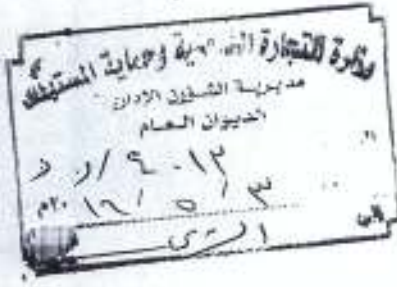 وزارة التجارة الداخلية وحماية المستهلك
مديرية الشؤون الادارية
الديوان العام
٩٠١٣ / د
٣ / ٥ / ١٦ ٢٠م